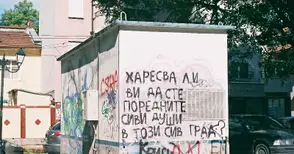 ХАРЕСВА ЛИ
ВИ ДА СТЕ
ПОРЕДНИТЕ
СИВИ ДУШИ
В ТОЗИ СИВ ГРАД?